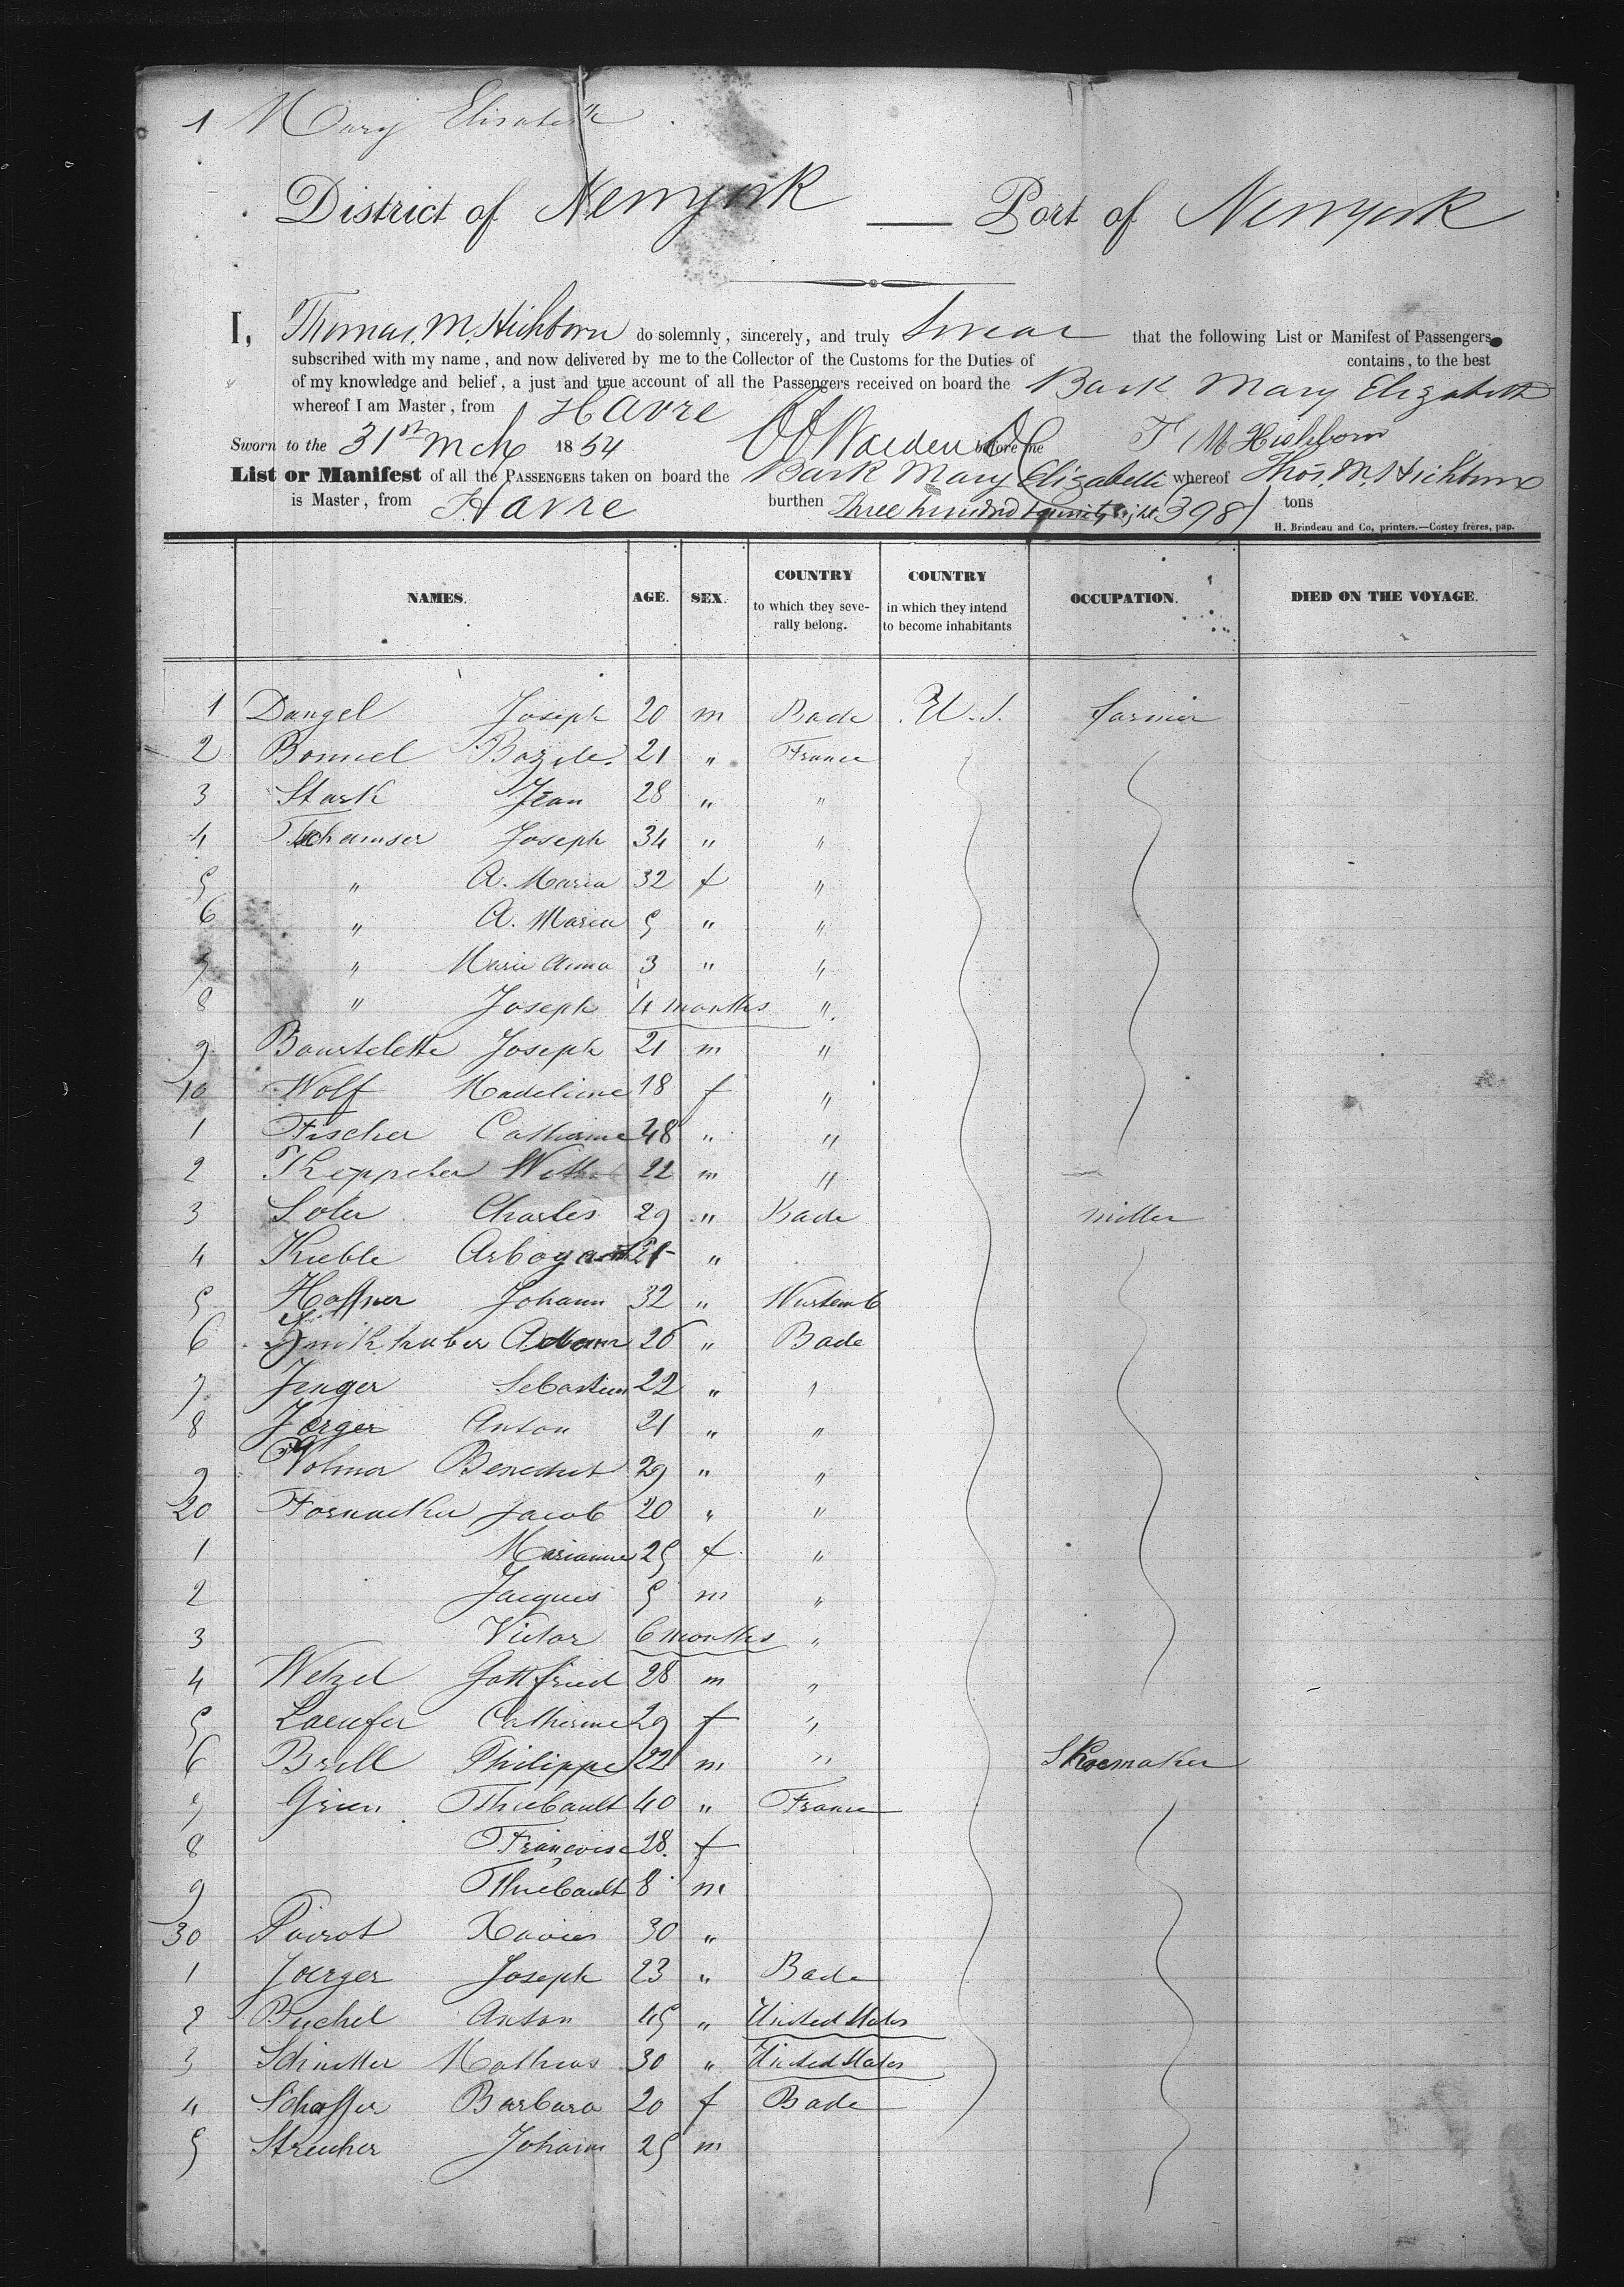 1 Mary Elisabeth
District of Newyork — Port of Newyork
I, Thomas. M. Hichborn do solemnly, sincerely, and truly Swear that the following List or Manifest of Passengers
subscribed with my name, and now delivered by me to the Collector of the Customs for the Duties of contains, to the best
of my knowledge and belief, a just and true account of all the Passengers received on board the Bark Mary Elizabeth
whereof I am Master, from Havre
Sworn to the 31st Mch 1854 before me T M Hichborn
List or Manifest of all the PASSENGERS taken on board the Bark Mary Elizabeth whereof Thos. M. Hichborn
is Master, from Havre burthen Three hundred 398 tons
H. Brindeau and Co, printers.—Costey frères, pap.
NAMES. AGE. SEX. COUNTRY to which they seve-rally belong. COUNTRY in which they intend to become inhabitants OCCUPATION. DIED ON THE VOYAGE.
1 Dangel Joseph 20 m Bade U.S. farmer
2 Bonnel Bazile. 21 " France
3 Stark Jean 28 " "
4 Tschamser Joseph 34 " "
5 " A. Maria 32 f "
6 " A. Maria 5 " "
7 " Marie Anna 3 " "
8 " Joseph 4 months "
9 Bourtelette Joseph 21 m "
10 Wolf Madeleine 18 f "
1 Fischer Catherine 48 " "
2 22 m "
3 Soler Charles 29 " Bade miller
4 Kueble Arbogast 21 "
5 Haffner Johann 32 " Wurtemb
6 Adam 26 " Bade
7 Jenger Sebastien 22 " "
8 Jerger Anton 21 " "
9 Volmer Benedict 29 " "
20 Fornacker Jacob 20 " "
1 Marianne 25 f "
2 Jacques 5 m "
3 Victor 6 months "
4 Wetzel Gottfried 28 m "
5 Laeufer Catherine 29 f "
6 Brill Philippe 22 m " Shoemaker
7 Grien Thiebault 40 " France
8 Françoise 28. f
9 Thiebault 8 m
30 Poirot Xavier 30 "
1 Joerger Joseph 23 " Bade
2 Buchel Anton 45 " United States
3 Mathias 30 " United States
4 Schaffer Barbara 20 f Bade
5 Streicher Johann 25 m